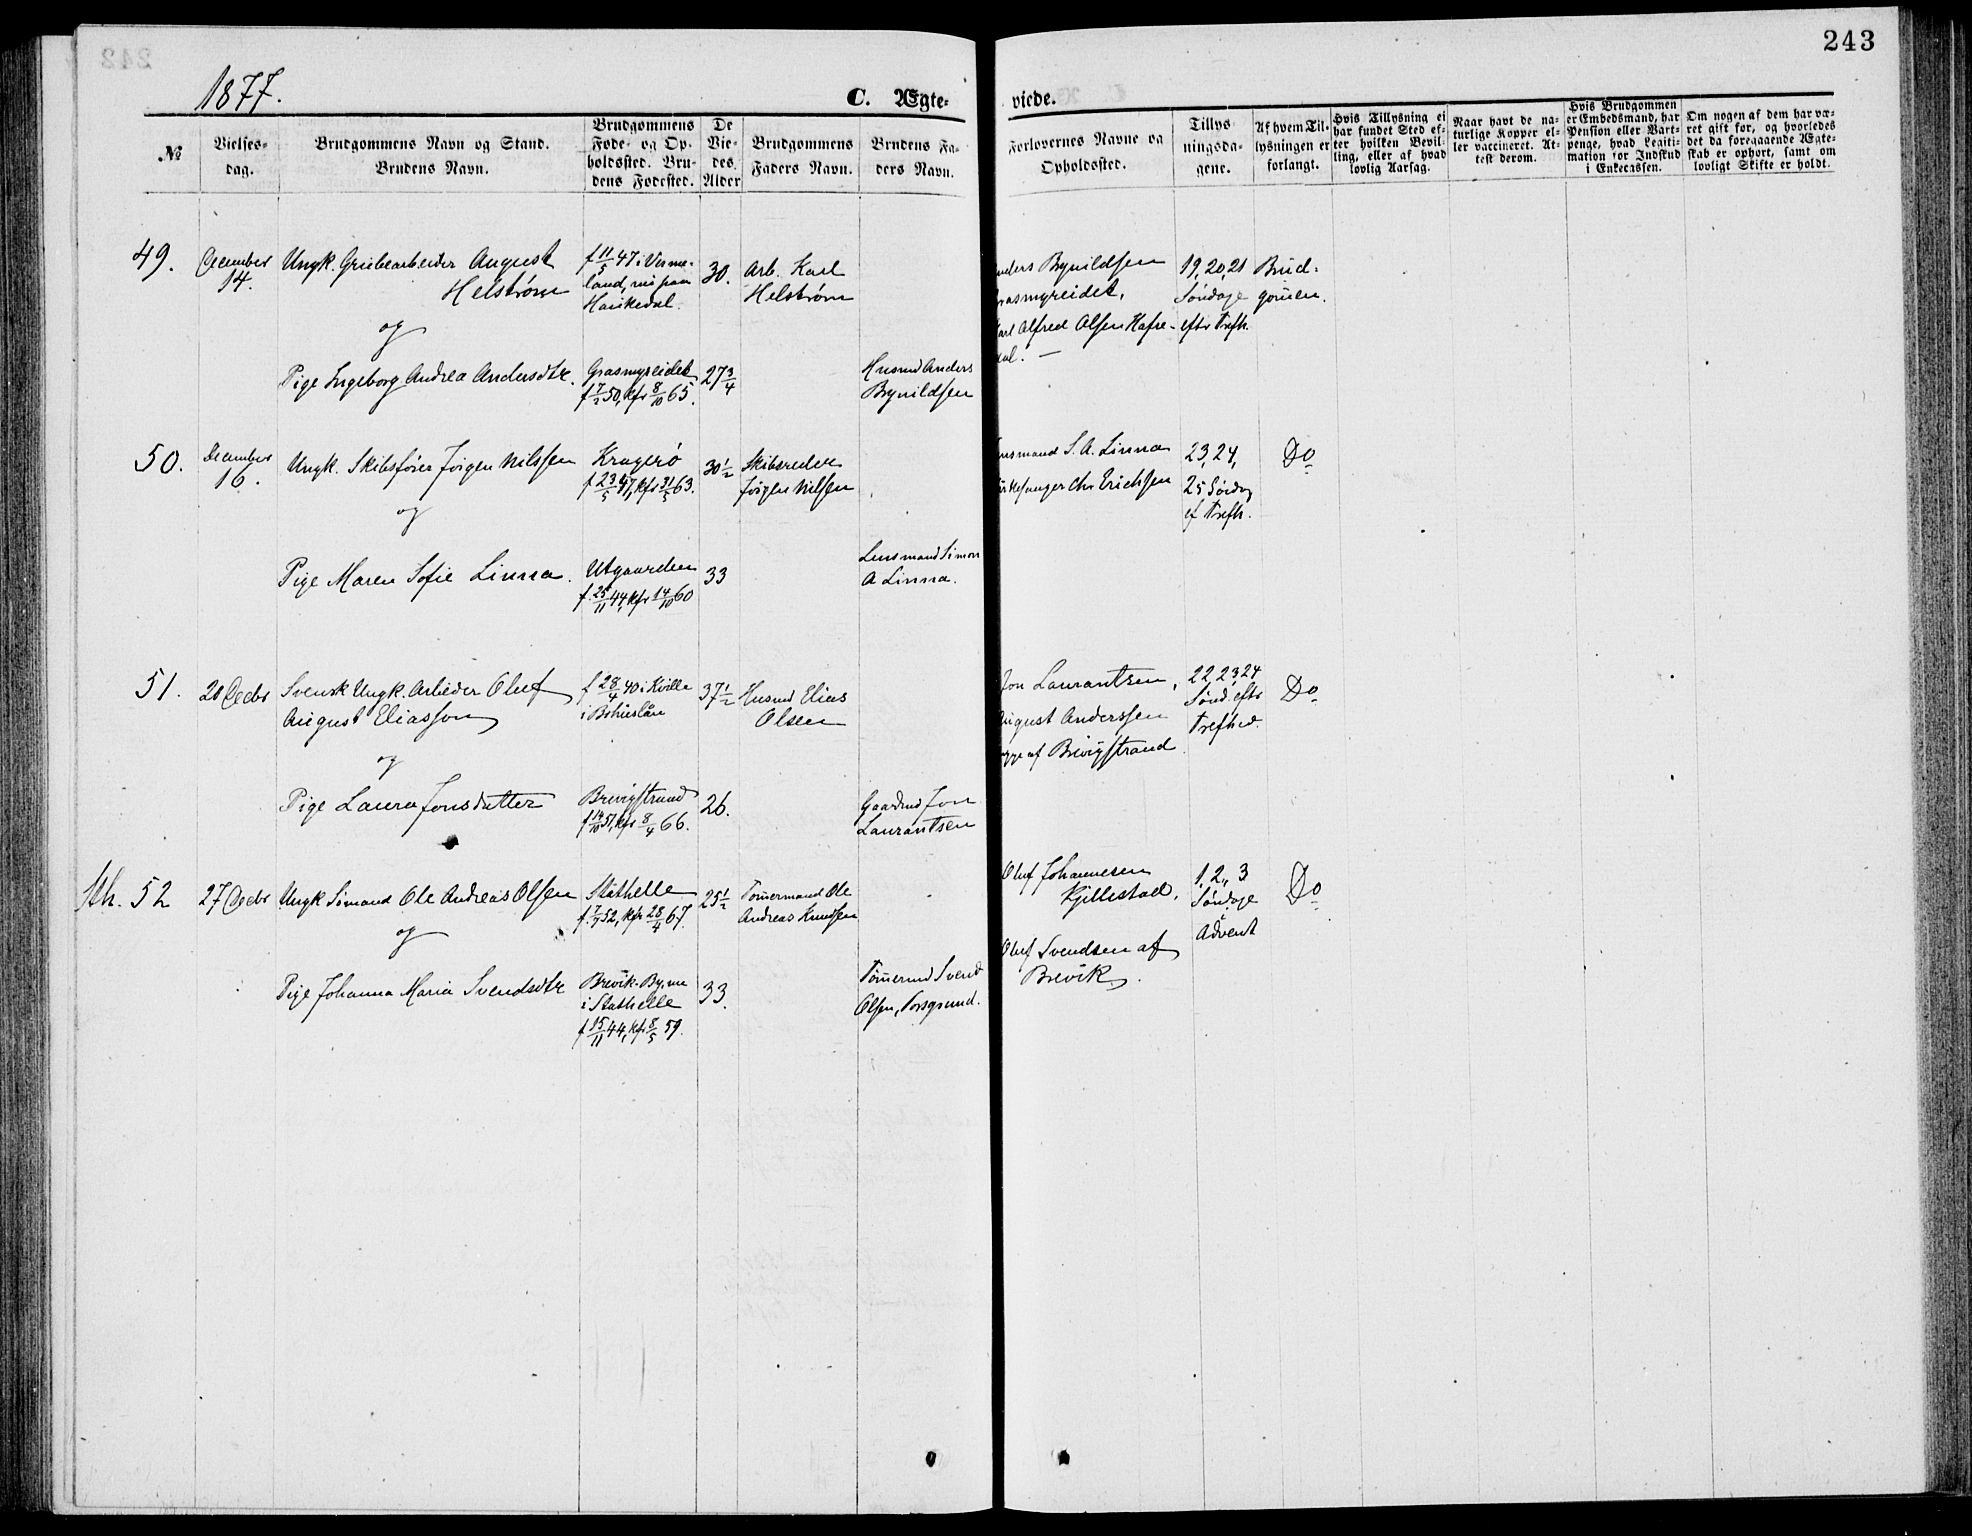 243
1877.
C. Ægte-
viede.
№
Vielses-
dag.
Brudgommens Navn og Stand.
Brudens Navn.
Brudgommens
Føde- og Op-
holdssted. Bru-
dens Fødested.
De
Vie-
des
Alder
Brudgommens
Faders Navn.
Brudens Fa-
ders Navn.
Forlovernes Navne og
Opholdssted.
Tillys
ningsda-
gene.
Af hvem Til-
lysningen er
forlangt.
Hvis Tillysning ei
har fundet Sted ef-
ter hvilken Bevil-
ling, eller af hvad
lovlig Aarsag.
Naar havt de na-
turlige Kopper el-
ler vaccineret. At-
test derom.
Hvis Brudgommen
er Embedsmand, har
Pension eller Vart-
penge, hvad Legiti-
mation for Indskud
i Enkecassen.
Om nogen af dem har væ-
ret gift før, og hvorledes
det da foregaaende Ægte-
skab er ophørt, samt om
lovligt Skifte er holdt.
49.
December
14.
Ungk. Grubearbeider August
Helstrøm
og
Pige Ingeborg Andrea Andersdtr.
f 11/5 47 i Verme-
land, nu paa
Grasmyreidet
f 7/2 50, kfr 8/10 65.
30.
27 3/4
Arb. Karl
Helstrøm
Husmd Anders
Brynildsen
nders Brynildsen
rasmyreidet,
arl Alfred Olsen Hafre-
dal. —
19, 20, 21
Søndage
eftr Trefh.
Brud-
gomen.
50.
December
16.
Ungk. Skibsfører Jørgen Nilssen
og
Pige Maren Sofie Linna.
Kragerø
f 23/5 47, kfr 31/5 63.
Utgaarden
f. 25/11 44, kfr 14/10 60
30 1/2
33
Skibsreder
Jørgen Nilsen
Lensmand Simon
A Linna.
ensmand S. A. Linna
irkesanger Chr Erichsen
23, 24,
25 Søndag
ef Trefh.
Do
51.
20 Decbr
Svensk Ungk. Arbeider Oluf
August Eliasson
og
Pige Laura Jonsdatter
f 28/4 40 i Kville
i Bohuslän
Brevigstrand
f 14/10 51, kfr 8/4 66.
37 1/2
26.
Husmd Elias
Olsen
Gaardmd Jon
Laurantsen
Jon Laurantsen,
August Anderssen
egge af Brevigstrand
22, 23, 24
Sønd. eftr
Trefhed.
Do
Sth. 52
27 Decbr
Ungk Sømand Ole Andreas Olsen
og
Pige Johanna Maria Svendsdtr
Stathelle
f. 7/7 52, kfr 28/4 67.
Brevik-By, nu
i Stathelle
f 15/11 44, kfr 8/5 59.
25 1/2
33.
Tømermand Ole
Andreas Knudsen
Tømermd Svend
Olsen, Porsgrund.
Oluf Johannesen
Kjillestad,
Oluf Svendsen af
Brevik.
1, 2, 3
Søndage
i
Advent
Do